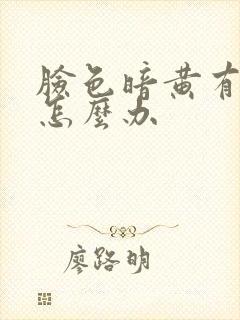 臉色暗黄有
怎麼办
廖路明